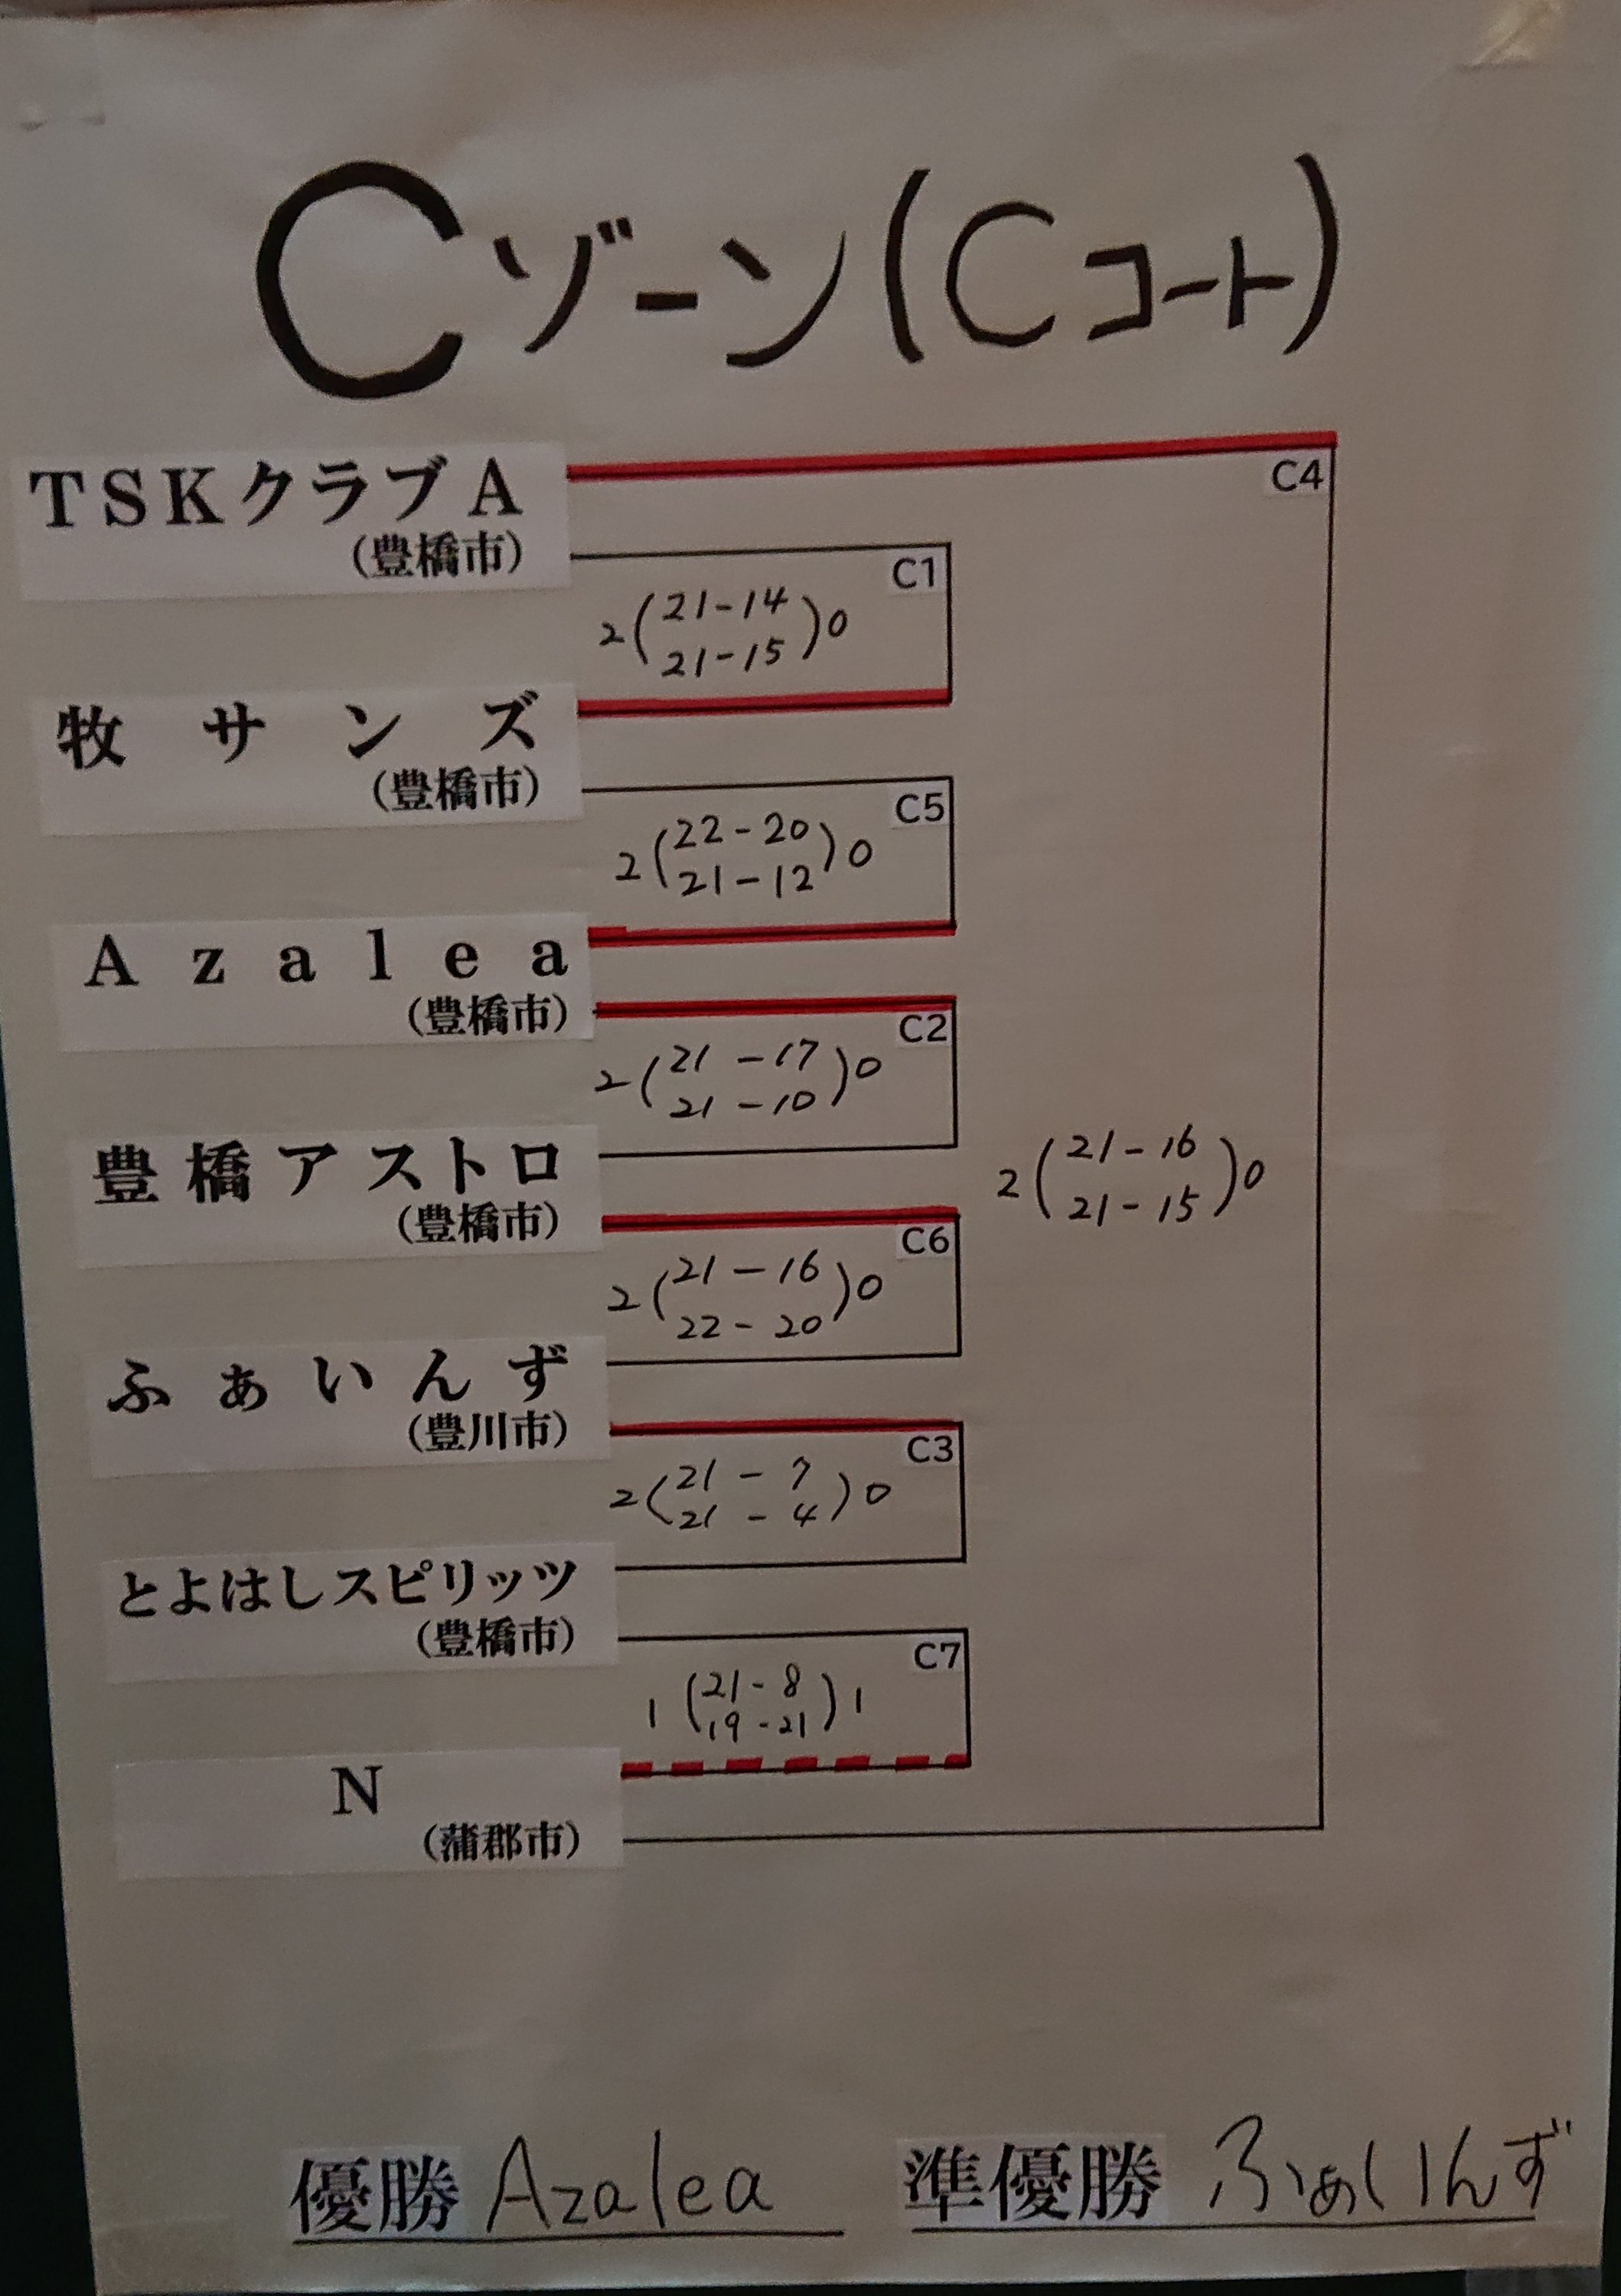 Cゾーン(Cコート)
TSKクラブA
C4
(豊橋市)
C1
2(21-14
21-15)0
牧サンズ
(豊橋市)
C5
2(22-20
21-12)0
Azalea
(豊橋市)
C2
2(21-17
21-10)0
豊橋アストロ
(豊橋市)
2(21-16
21-15)0
C6
2(21-16
22-20)0
ふぁいんず
(豊川市)
C3
2(21-7
21-4)0
とよはしスピリッツ
(豊橋市)
C7
1(21-8
19-21)1
N
(蒲郡市)
優勝 Azalea
準優勝 ふぁいんず